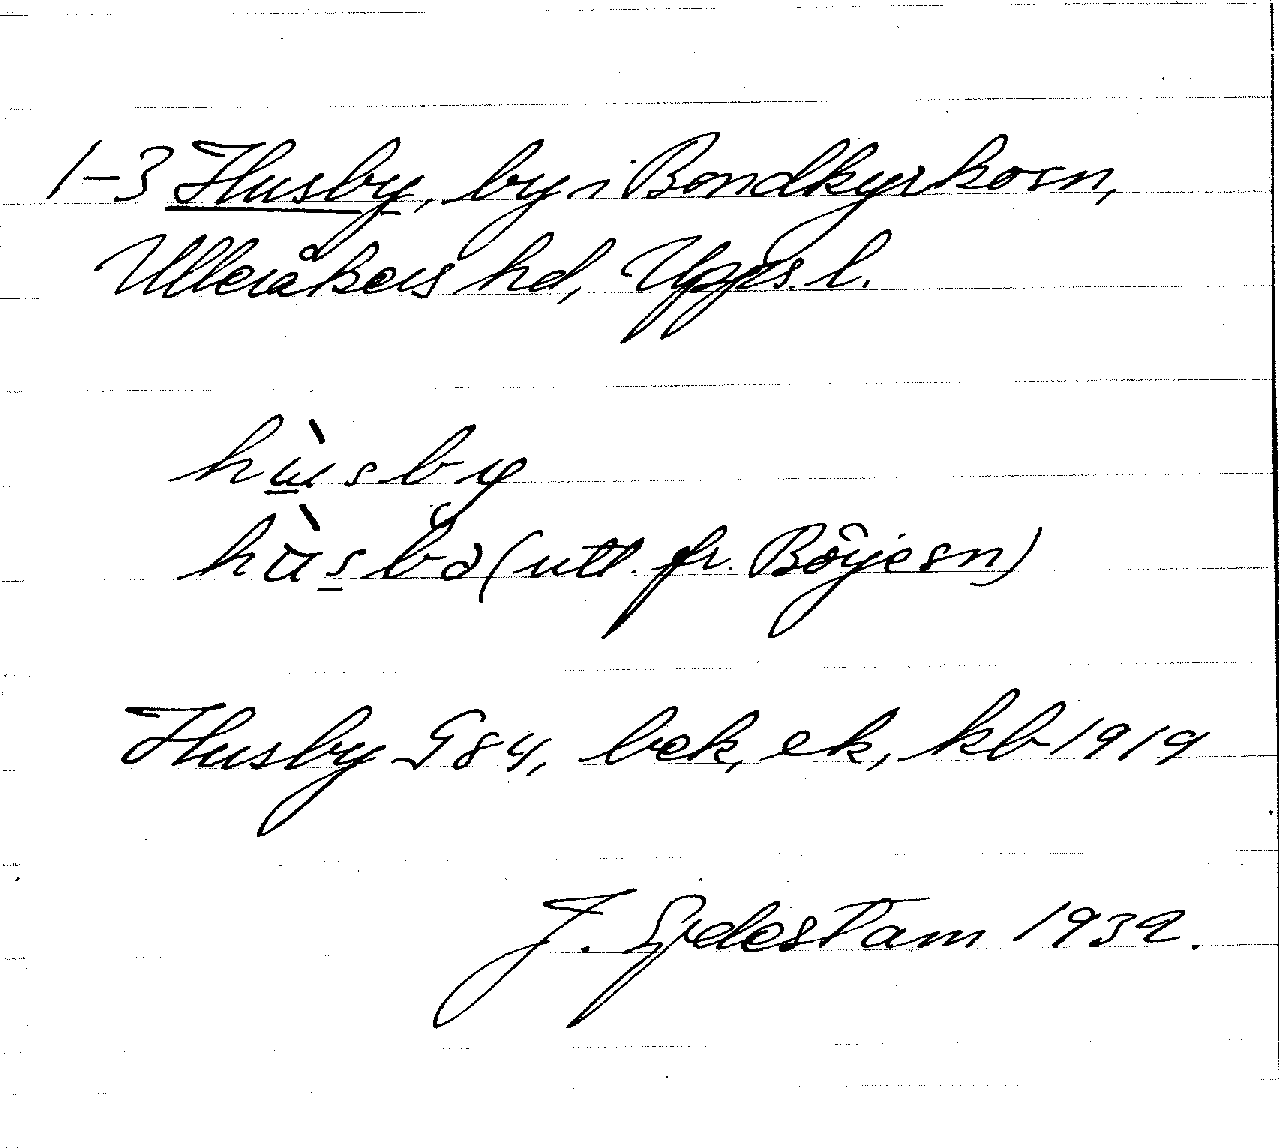 1-3 Husby, by i Bondkyrkosn,
Ulleråkers hd, Upps. l.
hùsby
hùsbə (utt. fr. Börjesn)
Husby G84, bek, ek, kb 1919
J. Sjdestam 1932.